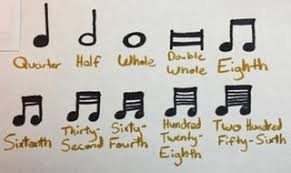 Quarter Half Whole Double Whole Eighth
Sixteenth Thirty-Second Sixty-Fourth Hundred Twenty-Eighth Two Hundred Fifty-Sixth